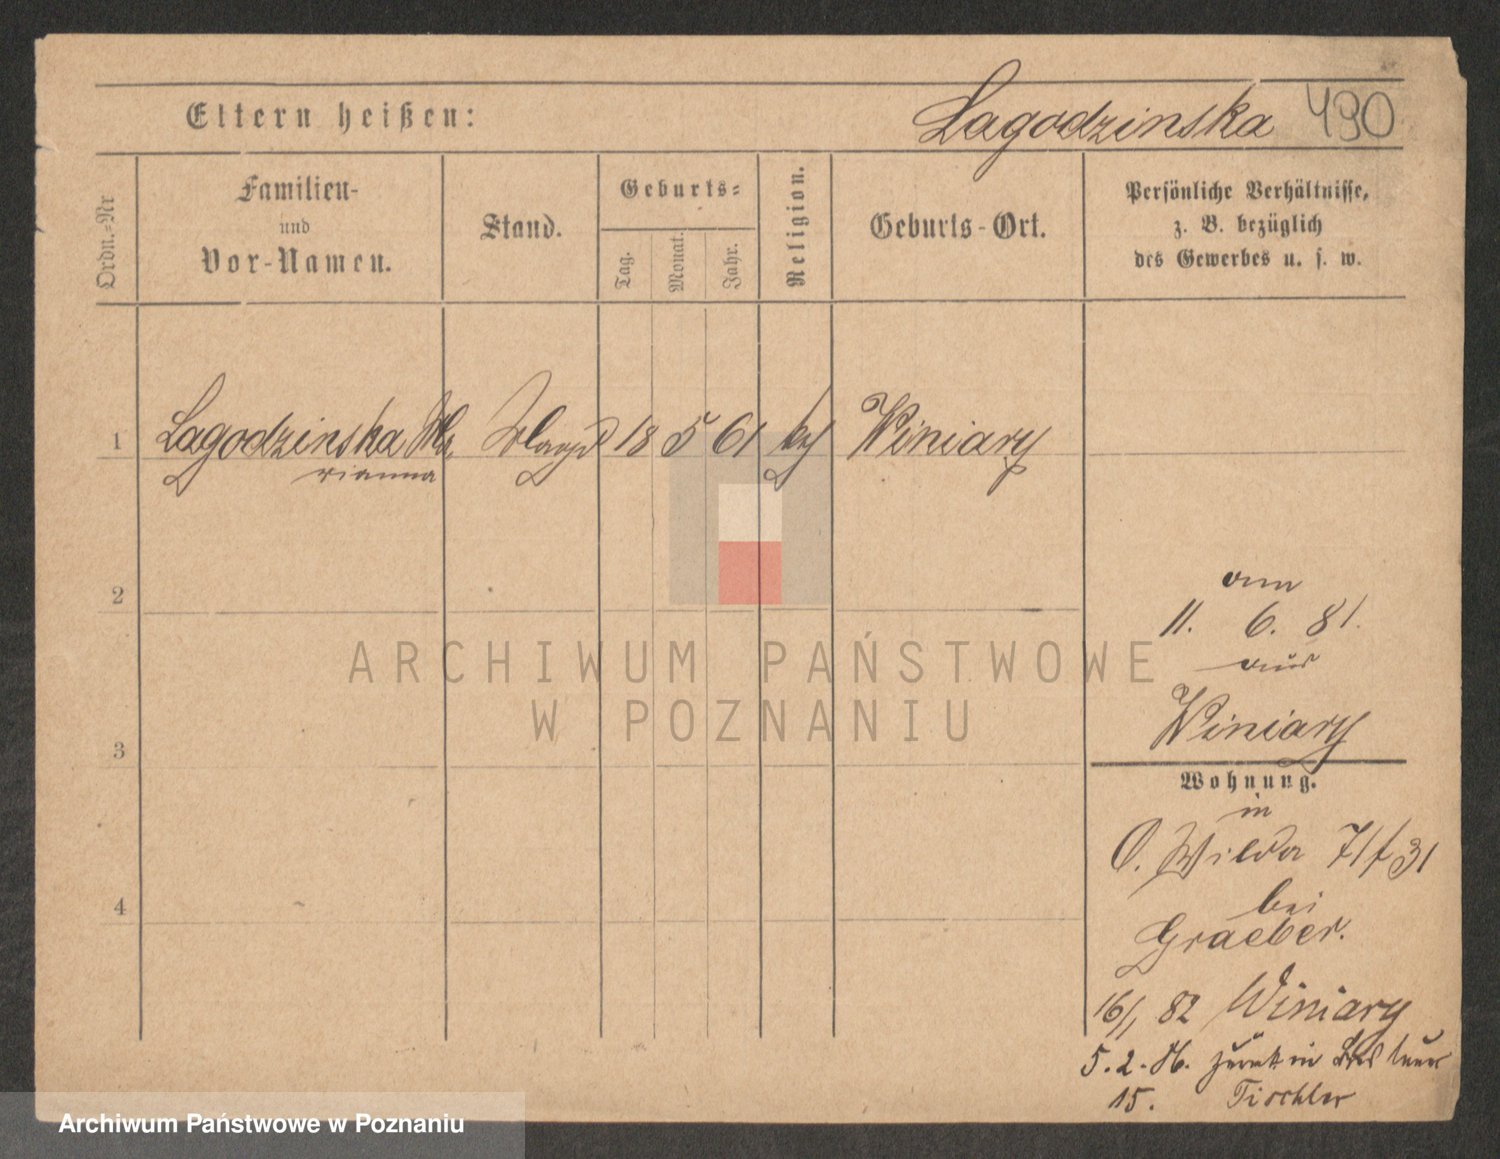 Eltern heißen:
Lagodzinska 490
Ordn.-Nr
Familien-
und
Vor-Namen.
Stand.
Geburts-
Tag.
Monat.
Jahr.
Religion.
Geburts-Ort.
Persönliche Verhältnisse,
z. B. bezüglich
des Gewerbes u. s. w.
1 Lagodzinska Ma 18 5 61 Winiary
rianna
2
am
11. 6. 81.
aus
Winiary
3
Wohnung.
in
O. Wilda 71/t 31
4
bei
Graeber.
16/1 82 Winiary
5. 2. zurück in
15. Tischler
ARCHIWUM PAŃSTWOWE
W POZNANIU
Archiwum Państwowe w Poznaniu